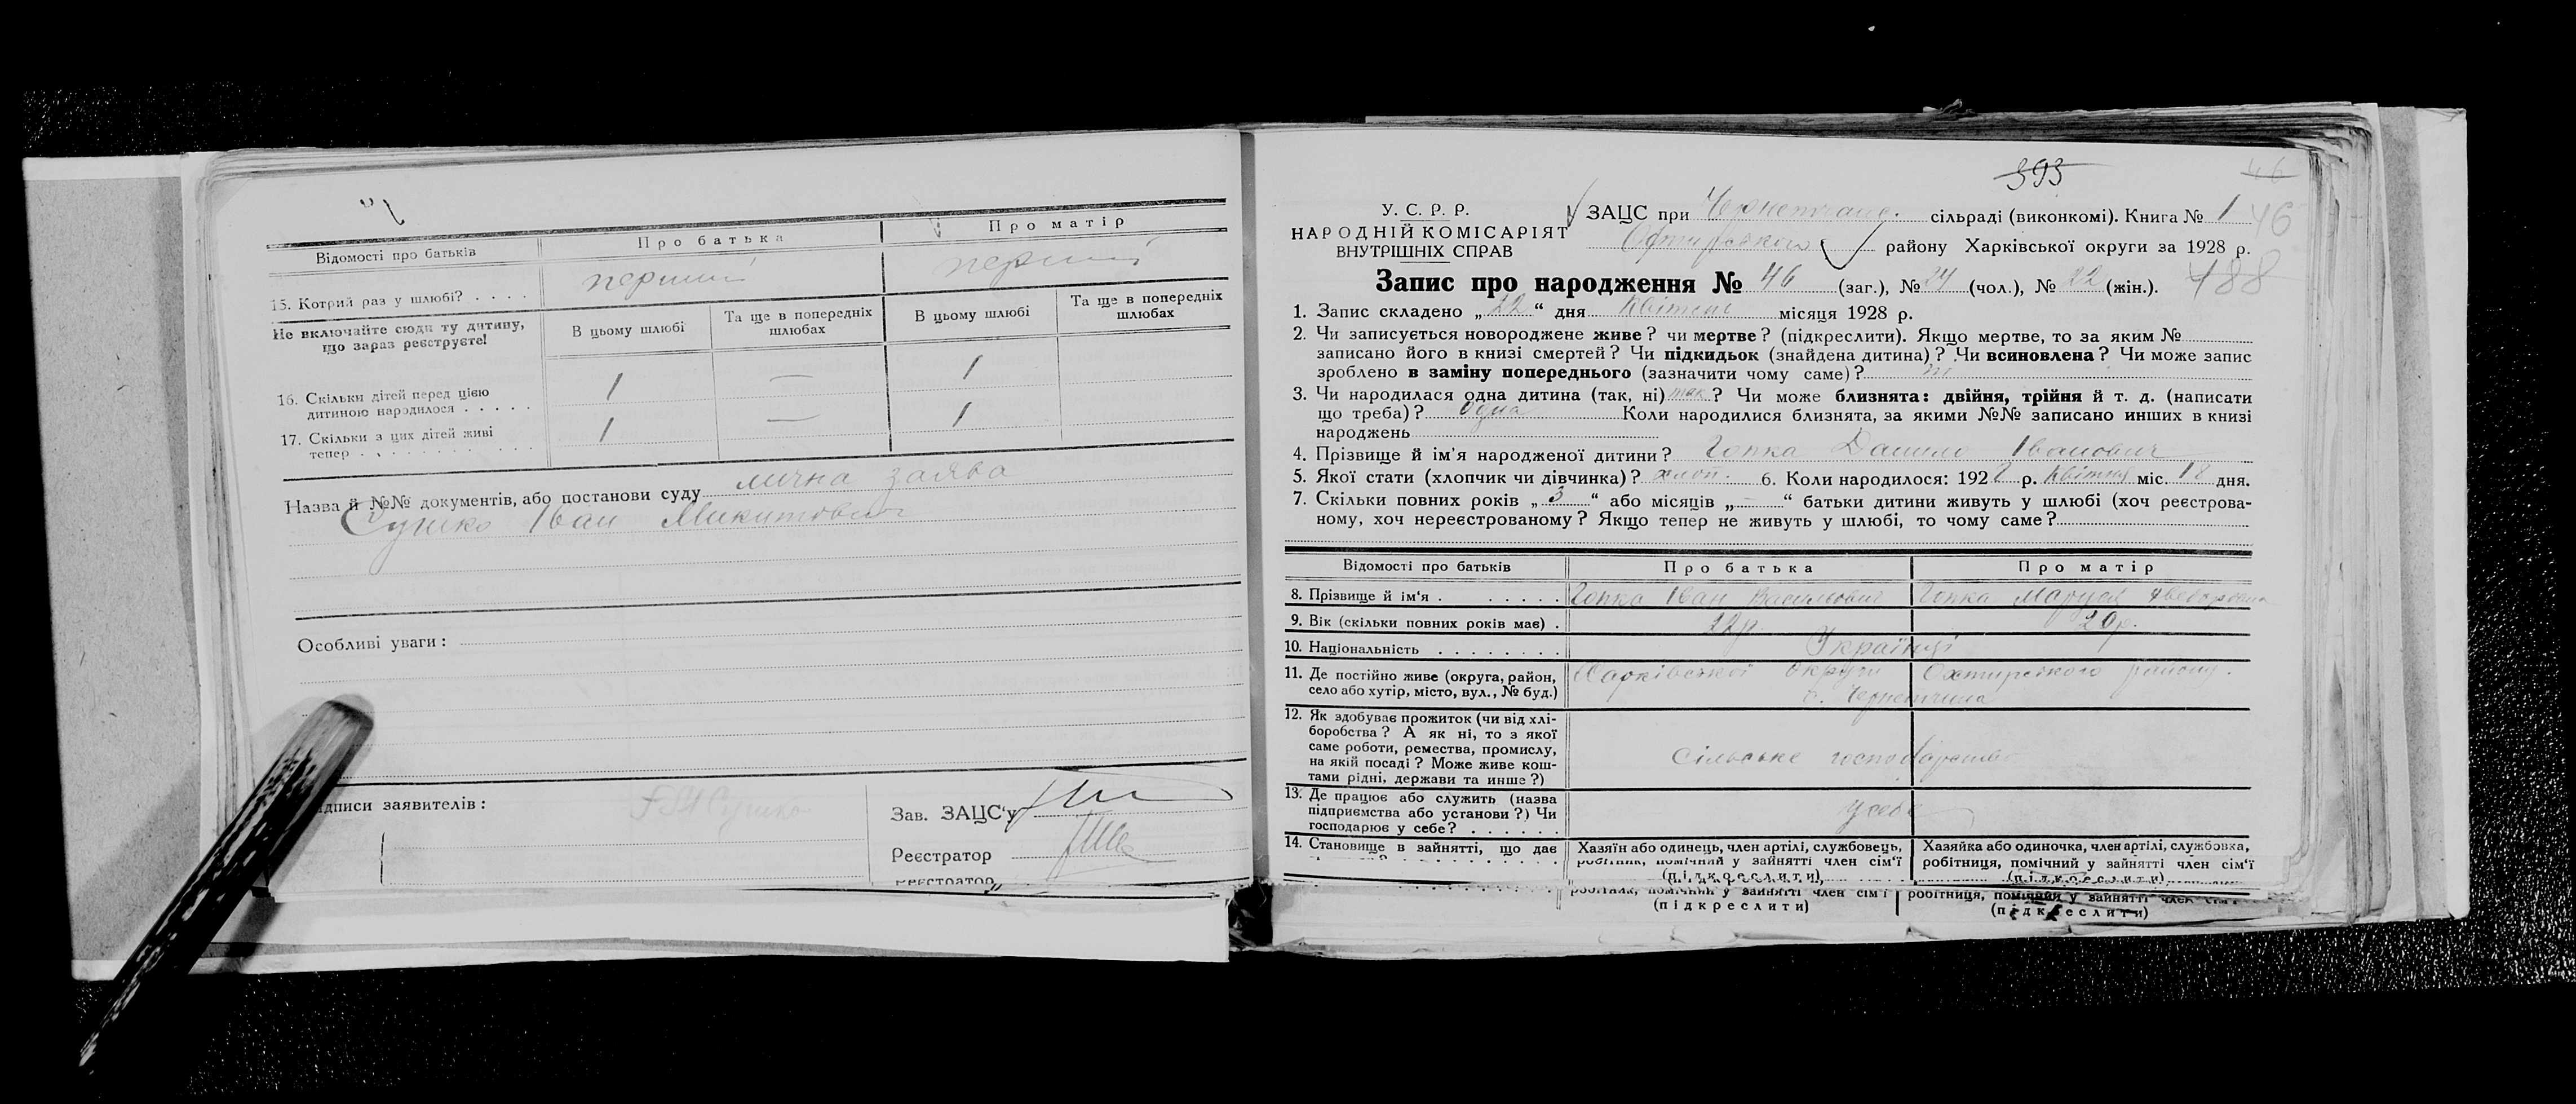 Відомості про батьків
Про батька
Про матір
15. Котрий раз у шлюбі? . . . .
перший
перший
Не включайте сюди ту дитину, що зараз реєструєте!
В цьому шлюбі
Та ще в попередніх шлюбах
В цьому шлюбі
Та ще в попередніх шлюбах
16. Скільки дітей перед цією дитиною народилося . . . . .
1
—
1
17. Скільки з цих дітей живі тепер . . . . . . . . . . . .
1
—
1
Назва й №№ документів, або постанови суду лична заява
Сушко Іван Микитович
Особливі уваги:
дписи заявителів:
Сушко
Зав. ЗАЦС'у
Реєстратор
реєстратор
393
46
У. С. Р. Р.
НАРОДНІЙ КОМІСАРІЯТ
ВНУТРІШНІХ СПРАВ
ЗАЦС при Чернетчанс. сільраді (виконкомі). Книга № 1
46
Охтирського району Харківської округи за 1928 р.
188
Запис про народження № 46 (заг.), № 24 (чол.), № 22 (жін.).
1. Запис складено „ 22 “ дня квітня місяця 1928 р.
2. Чи записується новороджене живе? чи мертве? (підкреслити). Якщо мертве, то за яким №
записано його в книзі смертей? Чи підкидьок (знайдена дитина)? Чи всиновлена? Чи може запис
зроблено в заміну попереднього (зазначити чому саме)? ні
3. Чи народилася одна дитина (так, ні) так? Чи може близнята: двійня, трійня й т. д. (написати
що треба)? одна Коли народилися близнята, за якими №№ записано инших в книзі
народжень
4. Прізвище й ім'я народженої дитини? Гопка Данило Іванович
5. Якої стати (хлопчик чи дівчинка)? хлоп. 6. Коли народилося: 1928 р. квітня міс. 18 дня.
7. Скільки повних років „ 3 “ або місяців „ — “ батьки дитини живуть у шлюбі (хоч реєстрова-
ному, хоч нереєстрованому? Якщо тепер не живуть у шлюбі, то чому саме?
Відомості про батьків
Про батька
Про матір
8. Прізвище й ім'я . . . . . .
Гопка Іван Василович
Гопка Маруся
9. Вік (скільки повних років має) .
22 р.
20 р.
10. Національність . . . . . . . .
Українці
11. Де постійно живе (округа, район,
село або хутір, місто, вул., № буд.)
Харківської округи Охтирського району
с. Чернетчина
12. Як здобуває прожиток (чи від хлі-
боробства? А як ні, то з якої
саме роботи, ремества, промислу,
на якій посаді? Може живе кош-
тами рідні, держави та инше?)
Сільське господарство
13. Де працює або служить (назва
підприємства або установи?) Чи
господарює у себе? . . . . . .
у себе
14. Становище в зайнятті, що дає
Хазяїн або одинець, член артілі, службовець,
робітник, помічний у зайнятті член сім'ї
(підкреслити)
Хазяйка або одиночка, член артілі, службовка,
робітниця, помічний у зайнятті член сім'ї
(підкреслити)
робітник, помічний у зайнятті член сім'ї
(підкреслити)
робітниця, помічний у зайнятті член сім'ї
(підкреслити)